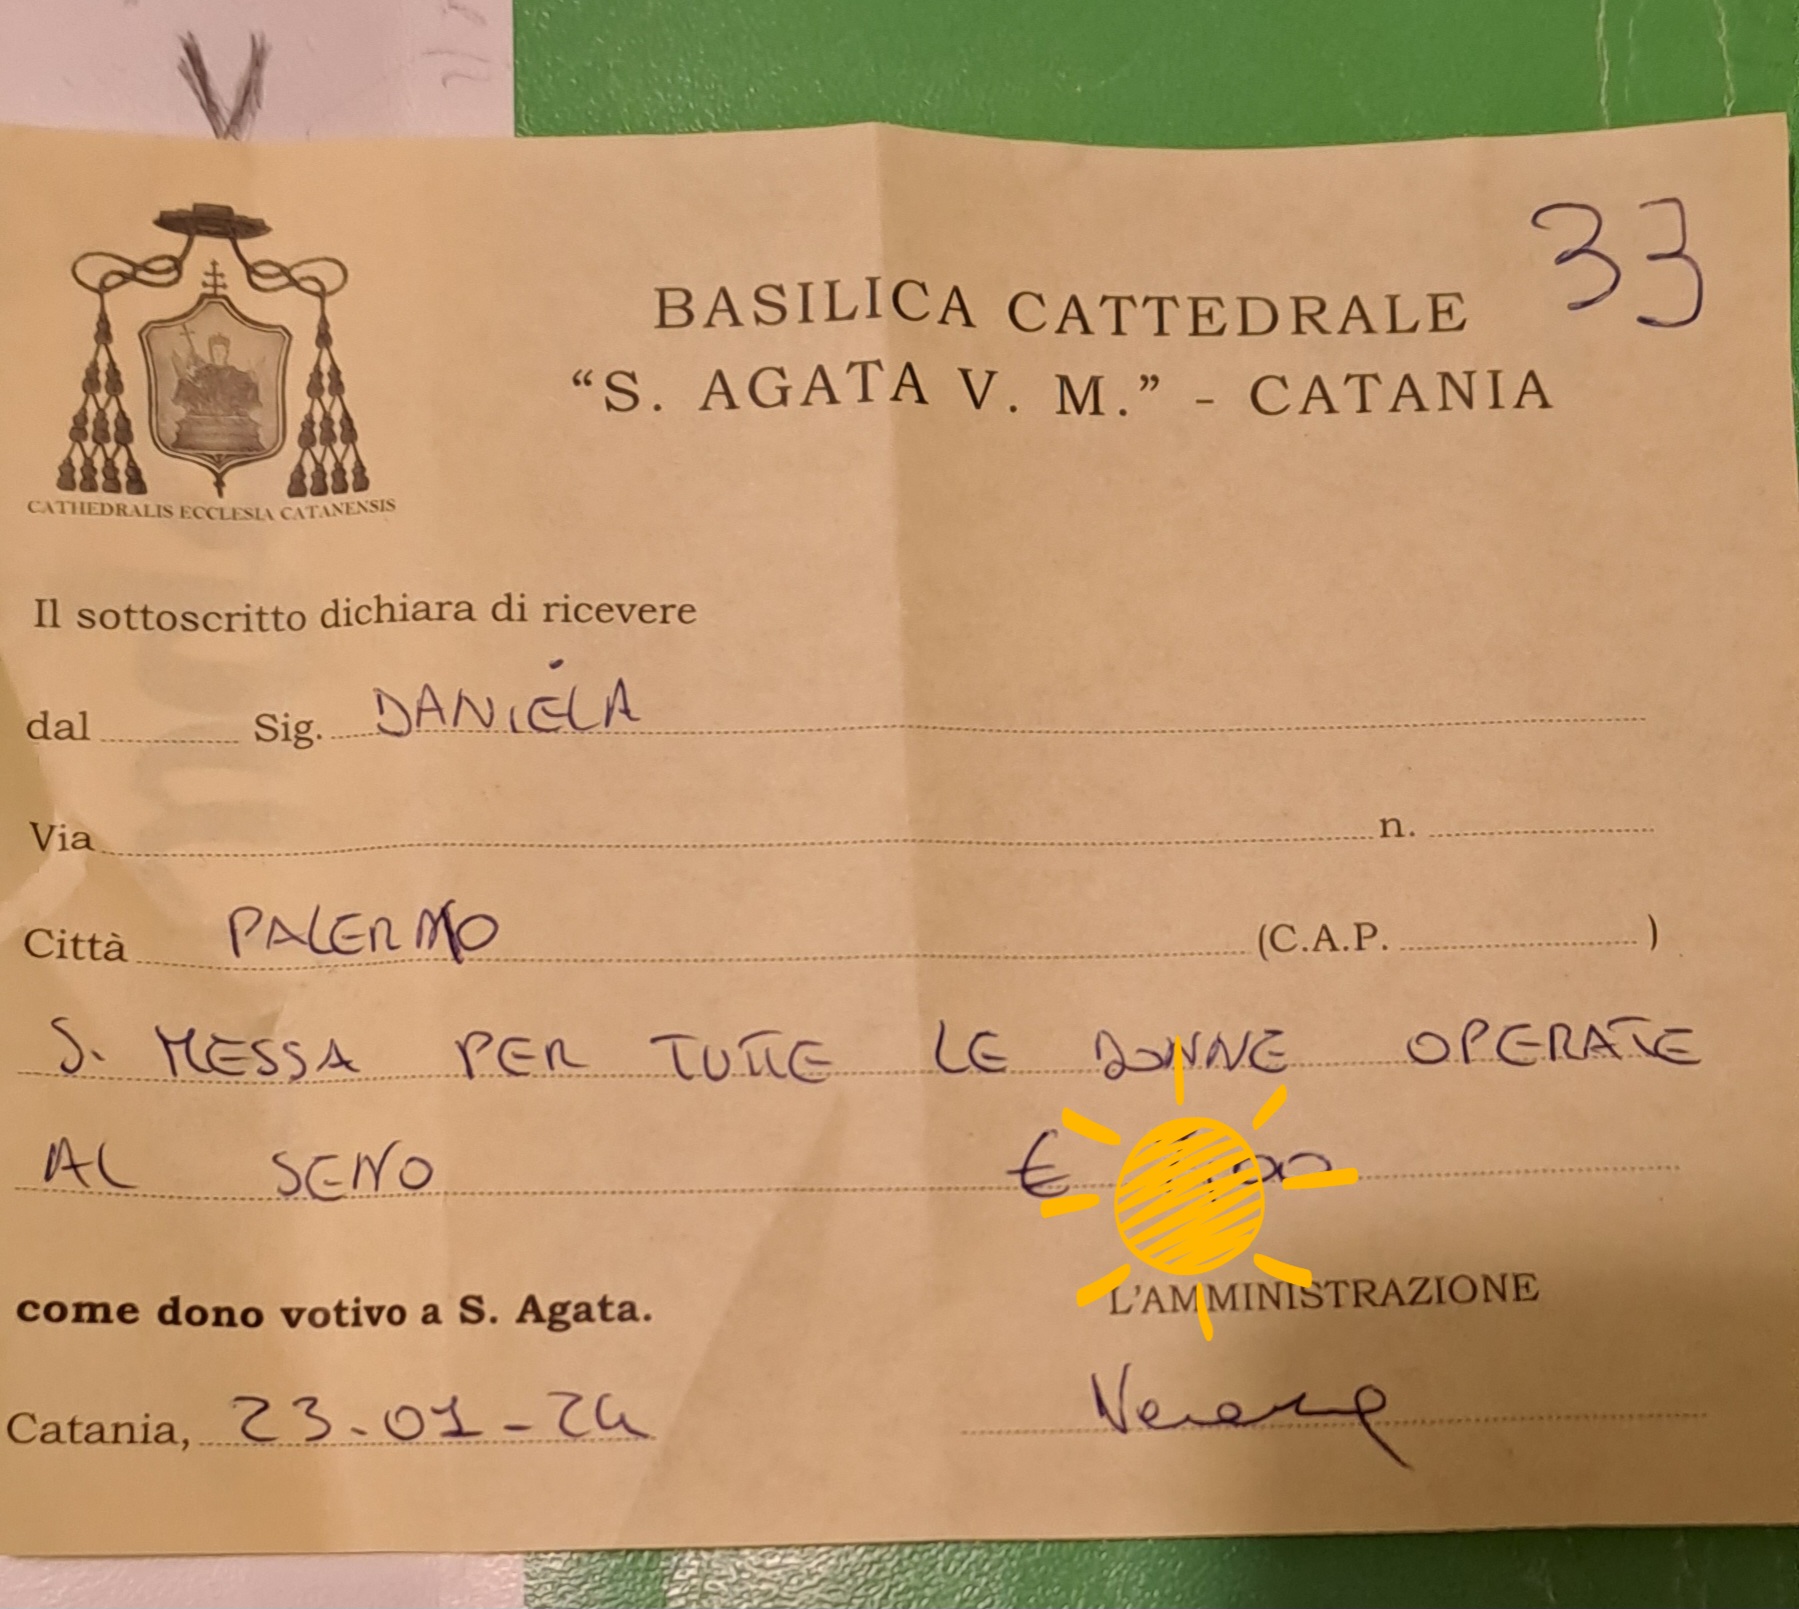 33
BASILICA CATTEDRALE
“S. AGATA V. M.” - CATANIA
CATHEDRALIS ECCLESIA CATANENSIS
Il sottoscritto dichiara di ricevere
dal Sig. DANIELA
Via n.
Città PALERMO (C.A.P. )
S. MESSA PER TUTTE LE DONNE OPERATE
AL SENO €
come dono votivo a S. Agata.
L'AMMINISTRAZIONE
Catania, 23.01-24